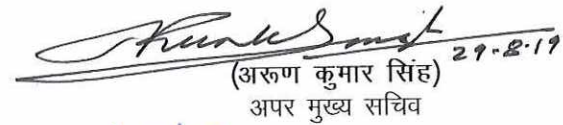 29-8-19
(अरूण कुमार सिंह)
अपर मुख्य सचिव